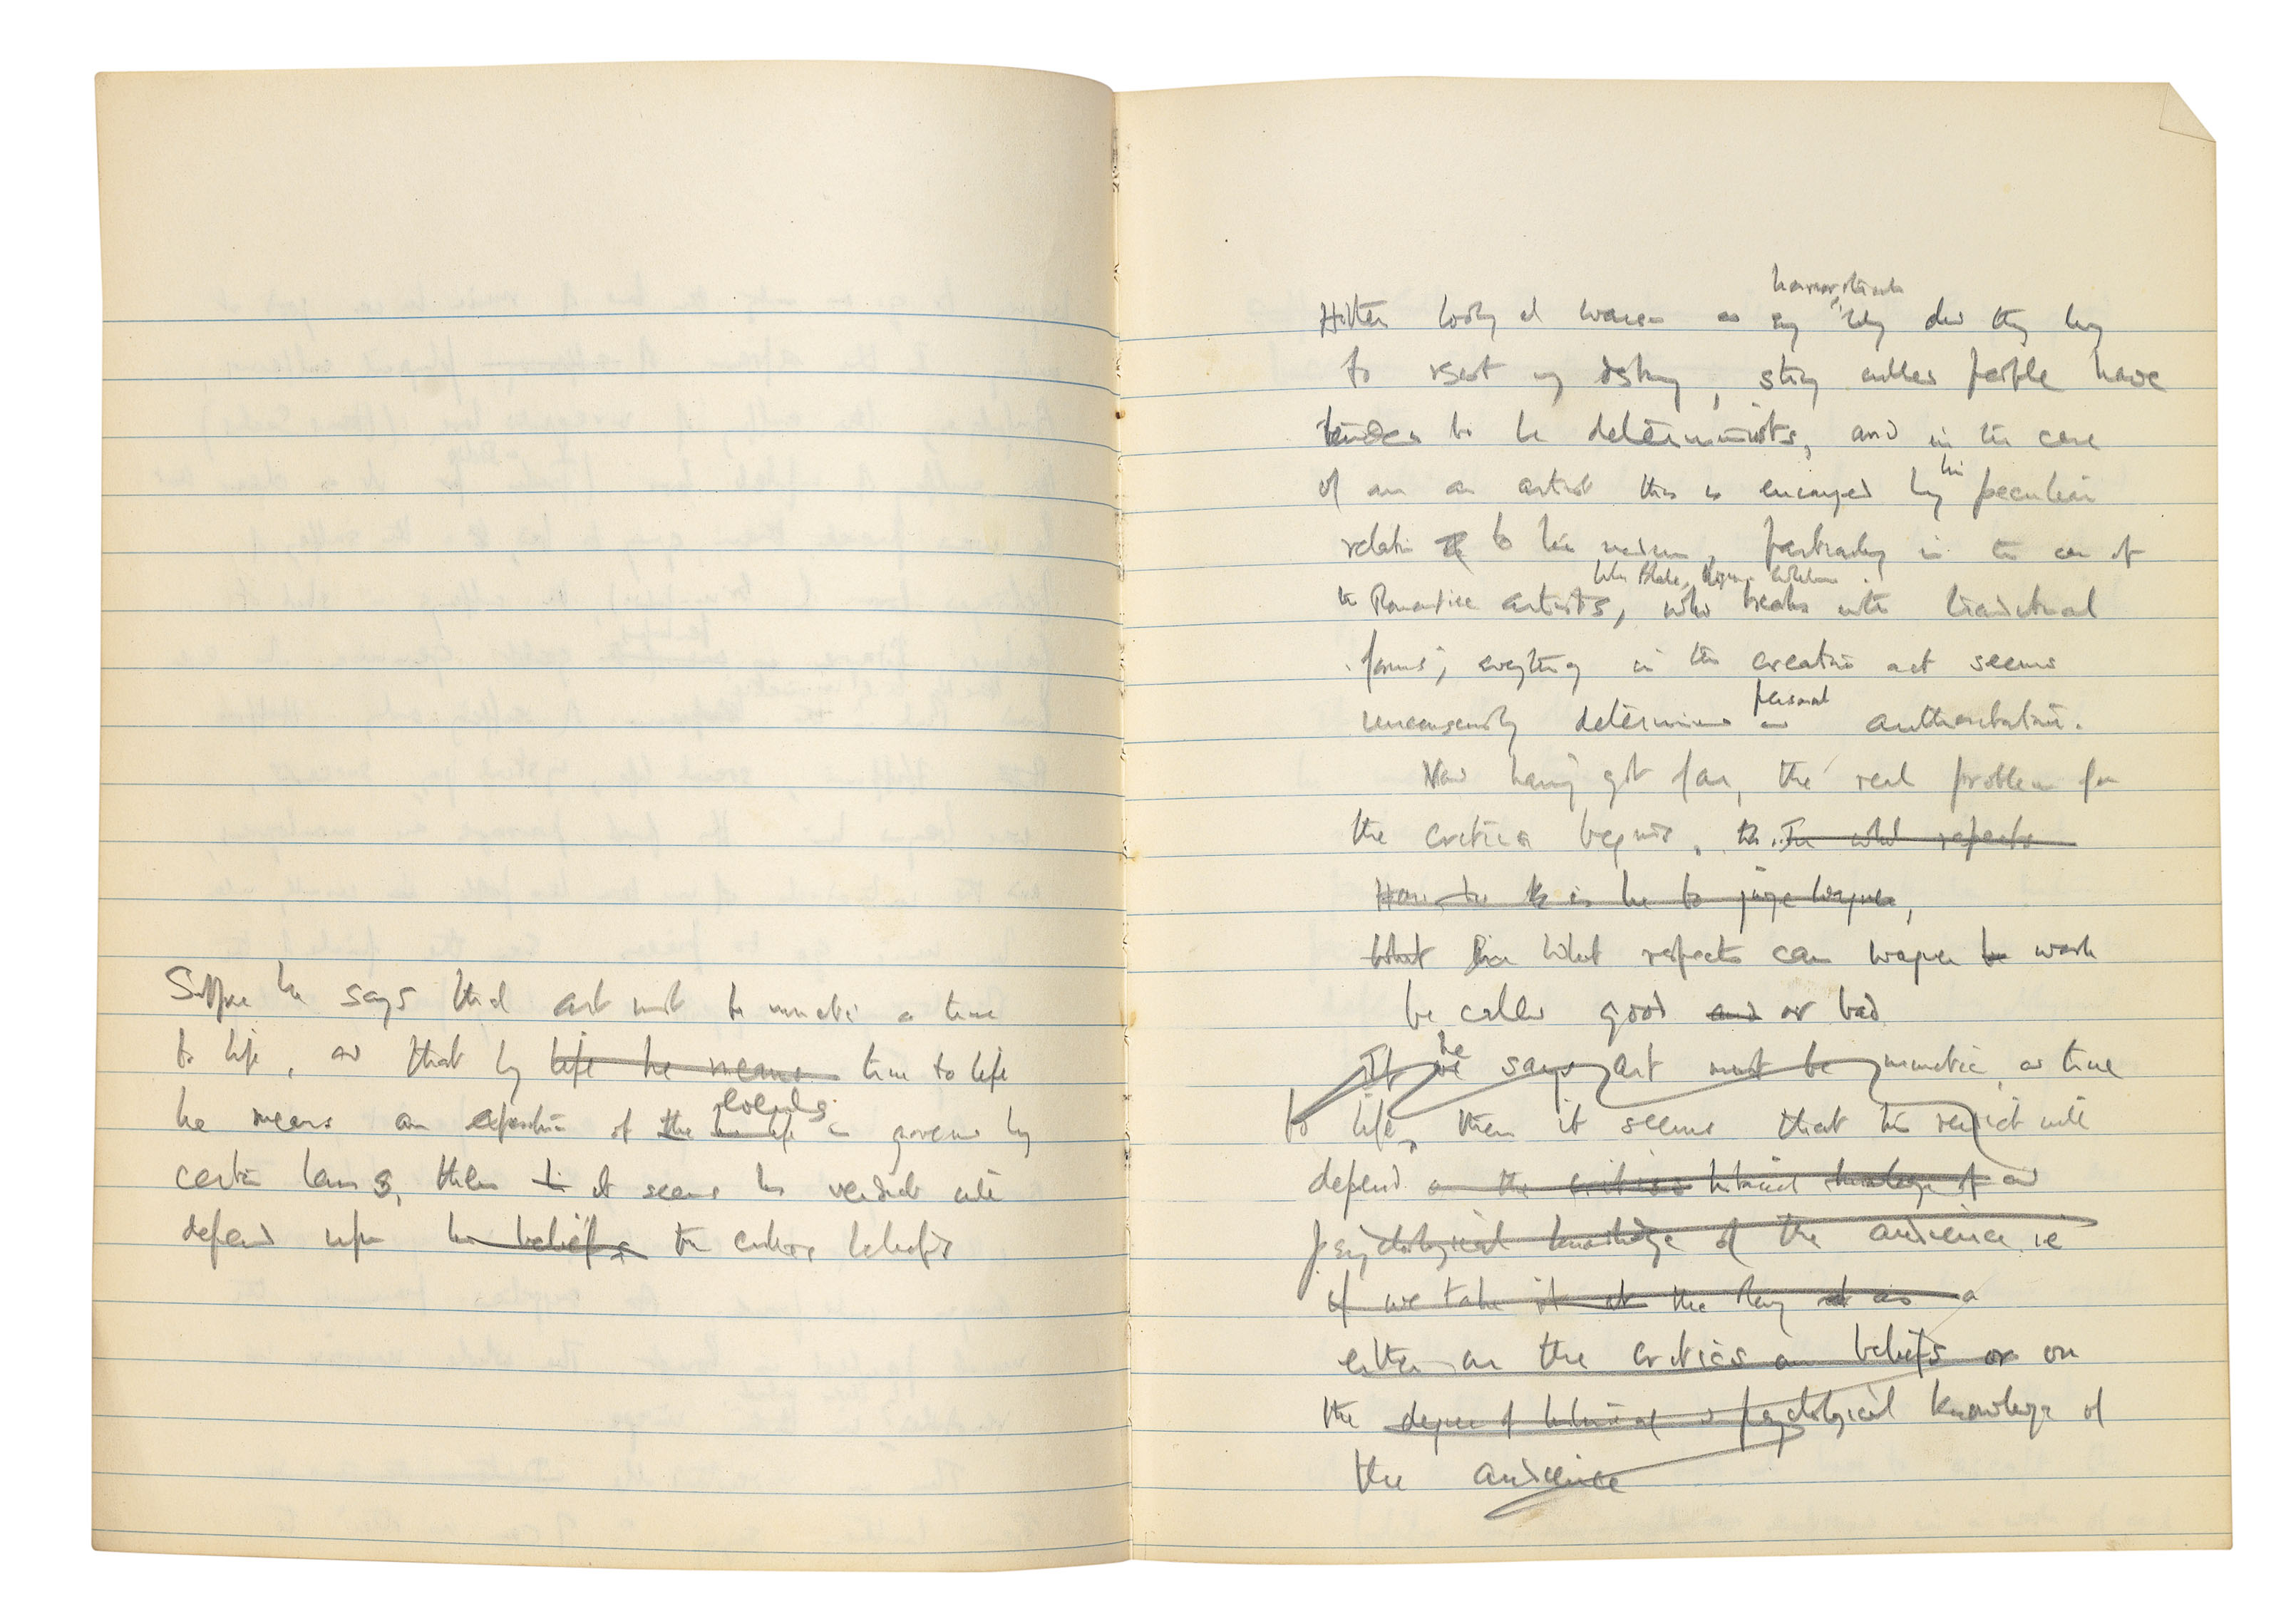 Suppose he says that art must be mimetic or true
to life, and that by life he means true to life
he means an exposition of the his life events as governed by
certain laws, then it seems his verdict will
depend upon his beliefs the critics beliefs
to resist my destiny, strong willed people have
tended to be determinists, and in the case
of an an artist this is encouraged by his peculiar
relation to his medium, particularly in the case of
like Blake, Wagner
the Romantic artists, who breaks with traditional
forms; everything in the creative act seems
personal
unconsciously determined authoritative.
Now having got far, the real problem for
the critics begins. the In what respects
How he is he to judge Wagner,
What in what respects can Wagner work
be called good and or bad
he
If we says Art must be mimetic, or true
to life, then it seems that his verdict will
depend on the critics historical knowledge of and
psychological knowledge of the audience ie
if we take it at the Ring as a
either on the critics own beliefs or on
the degree of historical or psychological knowledge of
the audience